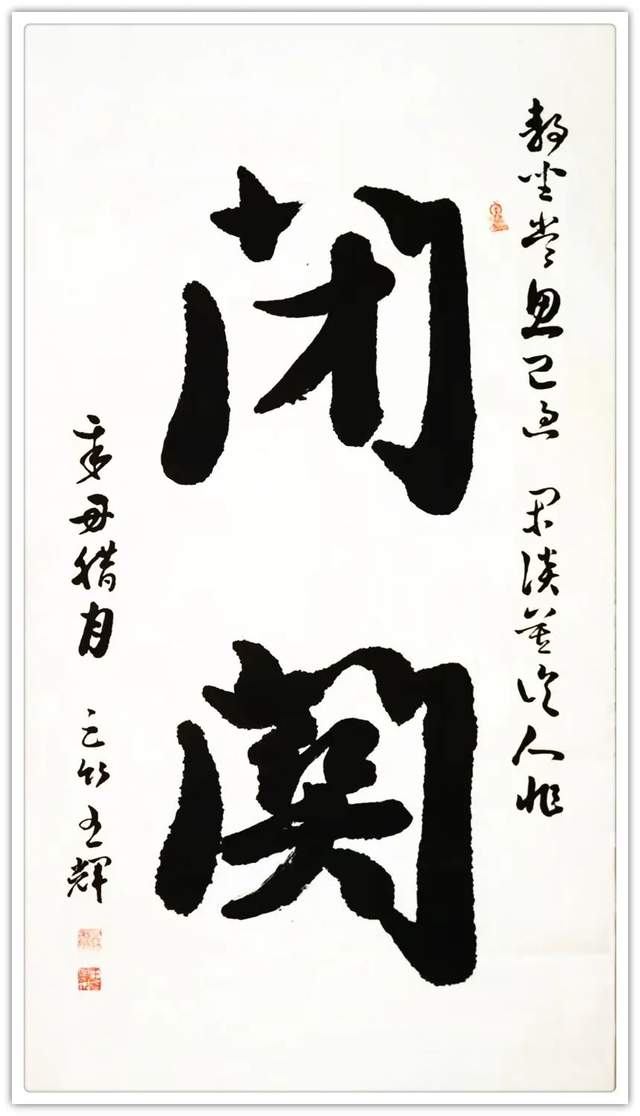 静坐常思己过 闲谈莫论人非
闭关
辛丑腊月 王輝